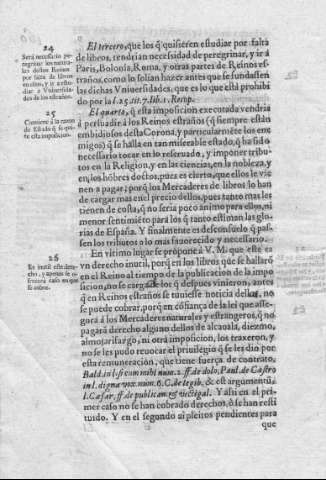 24
Será necessario pe-
regrinar los natura-
les destos Reinos
por falta de libros
en ellos, y ir a estu-
diar a Vniuersida-
des de los estraños.
El tercero, que los q̃ quisieren estudiar por falta
de libros, tendrian necesidad de peregrinar, y ir a
Paris, Bolonia, Roma, y otras partes de Reinos es-
traños, como lo solian hazer antes que se fundassen
las dichas Vniuersidades, que es lo que está prohibi
do por la l. 25. tit. 7. lib. 1. Recop.
25
Conuiene á la razon
de Estado q̃ se qui-
te esta imposicion.
El quarto, q̃ esta imposicion executada vendria
á persuadir á los Reinos estraños (q̃ siempre están
embidiosos desta Corona, y particularmẽte los ene-
migos) q̃ se halla en tan miserable estado, q̃ ha sido
necessario tocar en lo reseruado, y imponer tribu-
tos en la Religion, y en las ciencias, en la nobleza, y
en los hõbres doctos, pues es cierto, que ellos le vie-
nen a pagar; porq̃ los Mercaderes de libros lo han
de cargar mas en el precio dellos, pues tanto mas les
tienen de costa, q̃ no seria poco animo para ellos, ni
menor sentimiẽto para los q̃ tanto estiman las glo-
rias de España. Y finalmente es desconsuelo q̃ pas-
sen los tributos o lo mas fauorecido y necessario.
26
Es inutil este dere-
cho, y apenas se o-
frecerá caso en que
se cobre.
En vltimo lugar se propone á V. M. que este es
vn derecho inutil, porq̃ en los libros que se hallarõ
en el Reino al tiempo de la publicacion de la impo
sicion, no se carga, de los q̃ despues vinieron, antes
q̃ en Reinos estraños se tuuiesse noticia della, no
se puede cobrar, porq̃ en cõfiança de la lei que asse-
gura á los Mercaderes naturales y estrangeros, q̃ no
pagará derecho alguno dellos de alcauala, diezmo,
almojarifargo, ni otra imposicion, los traxeron, y
no se les pudo reuocar el priuilegio q̃ se les dio por
esta remuneración, que tiene fuerça de contrato,
Bald. in l. si cum mihi num. 2. ff. de dolo, Paul. de Castro
in l. digna vox num. 6. C. de legib. & est argumentũ
l. Cæsar. ff. de publican. & vectigal. Y assi en el pri-
mer caso no se han cobrado derechos, ò se han resti
tuido. Y en el segundo ai pleitos pendientes para
que